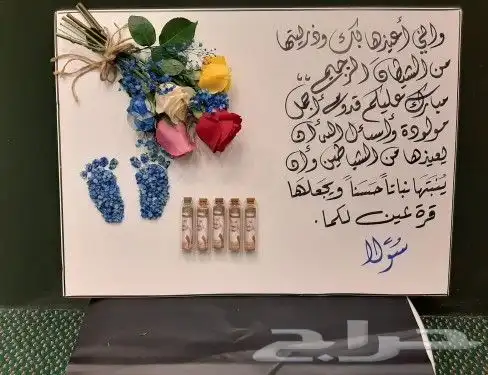 وإني أعيذها بك وذريتها
من الشيطان الرجيم ،،
مبارك عليكم قدوم أجمل
مولودة وأسأل الله أن
يعيذها من الشياطين وأن
يُنبتها نباتاً حسناً ويجعلها
قرة عين لكما.
حراج